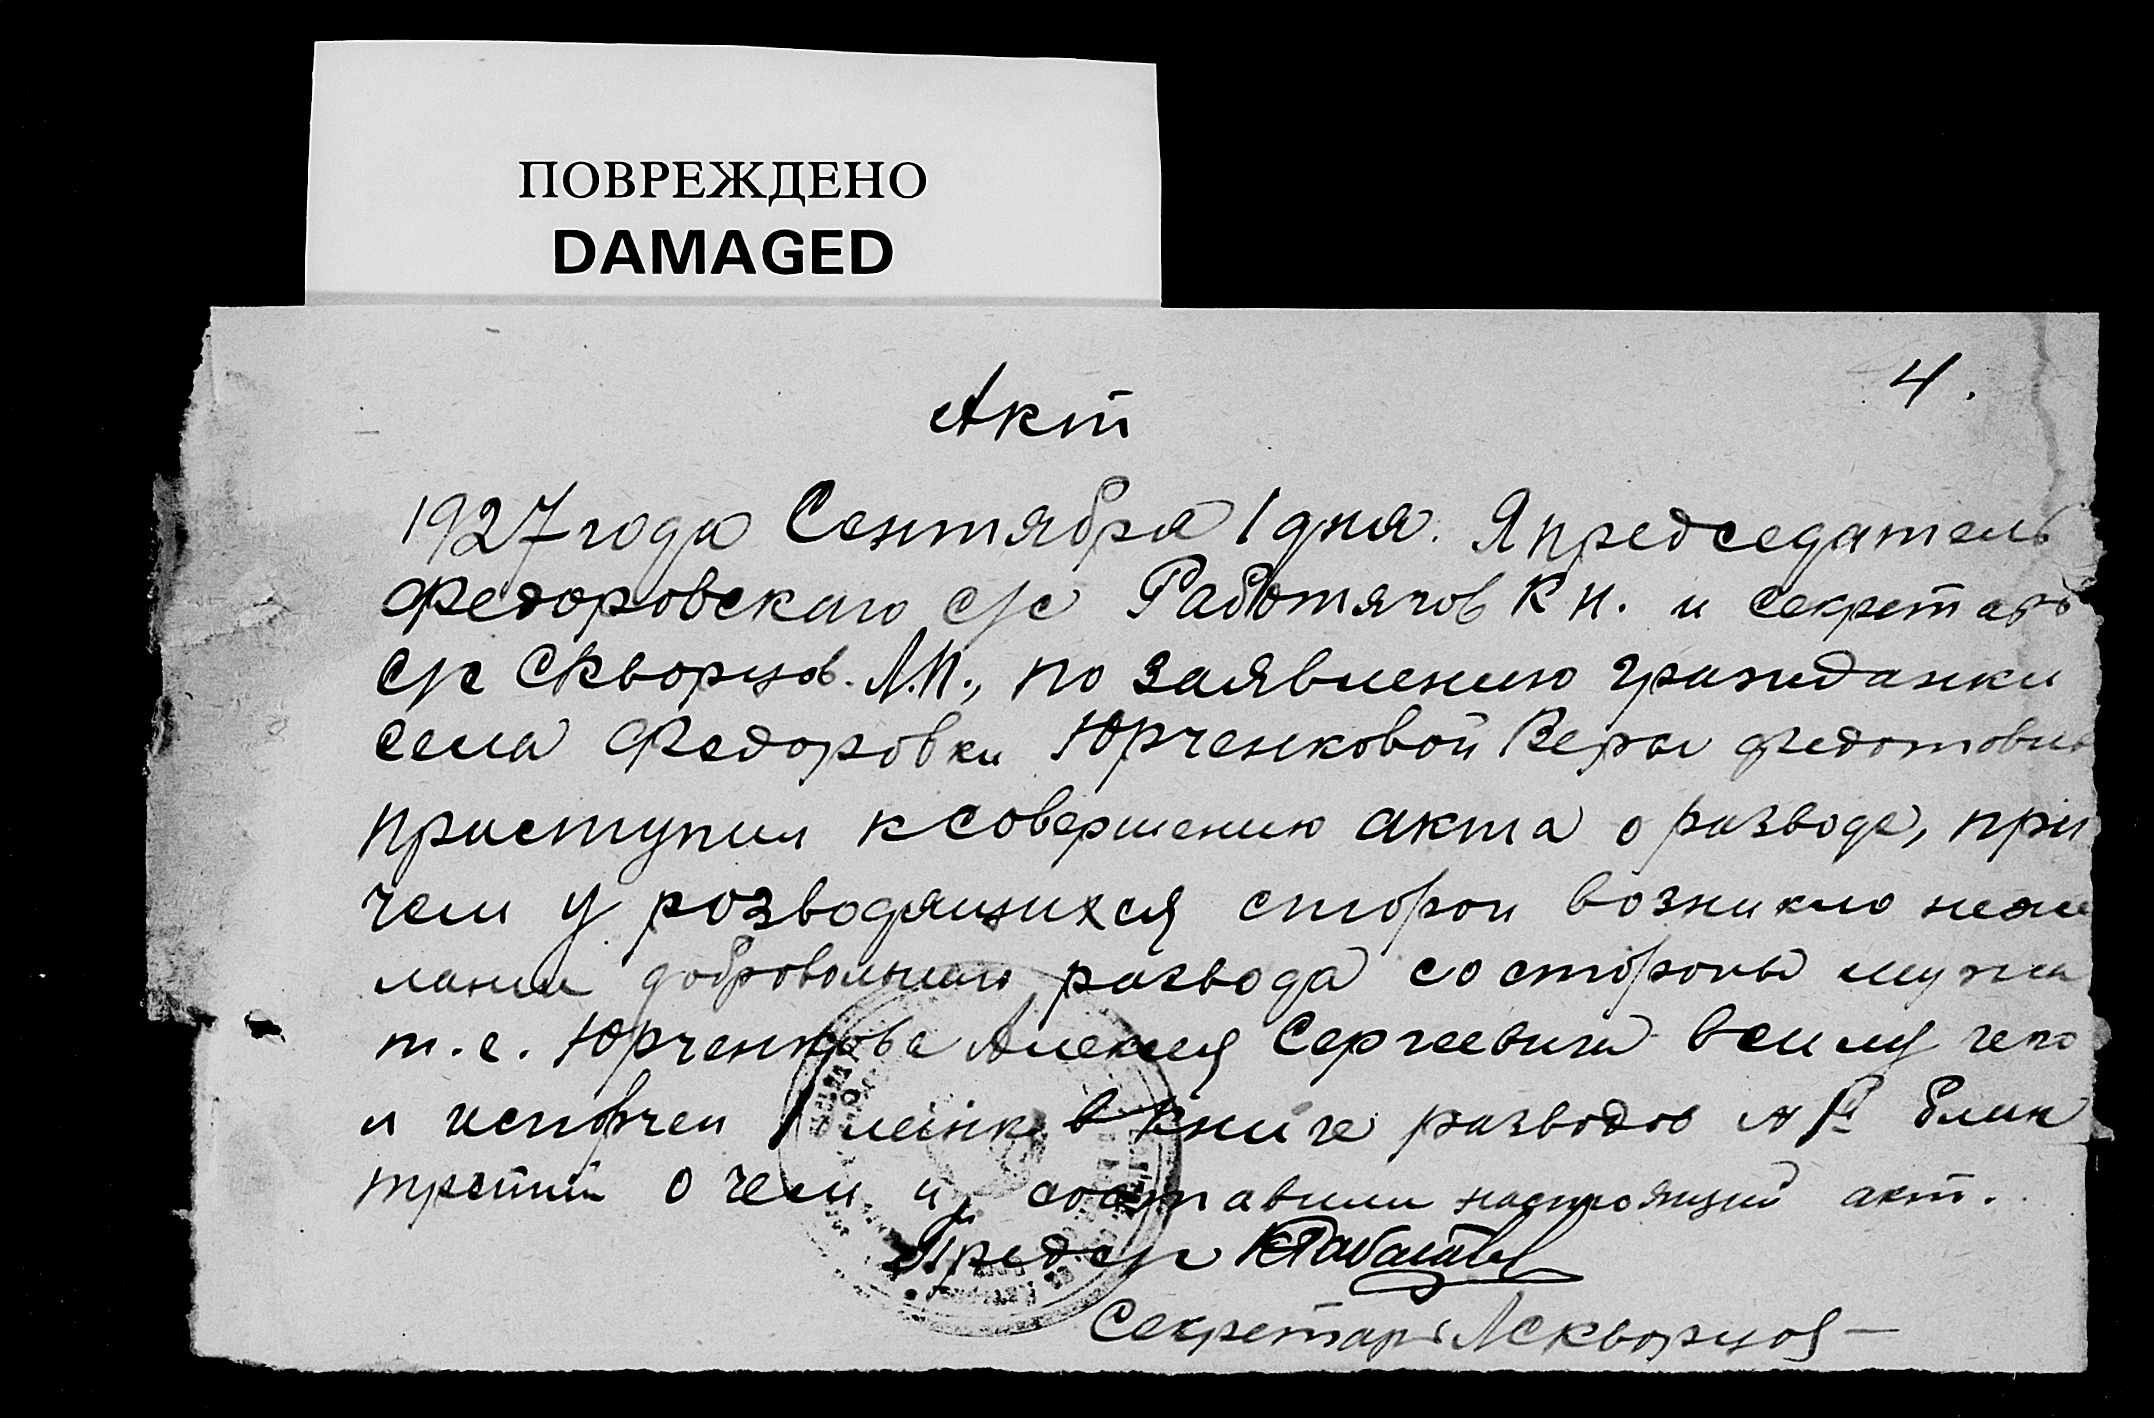 ПОВРЕЖДЕНО
DAMAGED
4.
Акт
1927 года Сентября 1 дня. Я председатель
Федоровскаго с/с Работягов К Н. и секретарь
с/с Скворцов Л.П., по заявлению гражданки
села Федоровки Юрченковой Веры Федотовны
приступил к совершению акта о разводе, при
чем у розводящихся сторон возникло неже
лании добровольнаго развода со стороны мужа
т.е. Юрченкова Алексея Сергеевича в силу чего
и испорчен 1 в книге разводов № блан
третий о чем и составили настоящий акт.
Предс/с
Секретарь ЛСкворцов